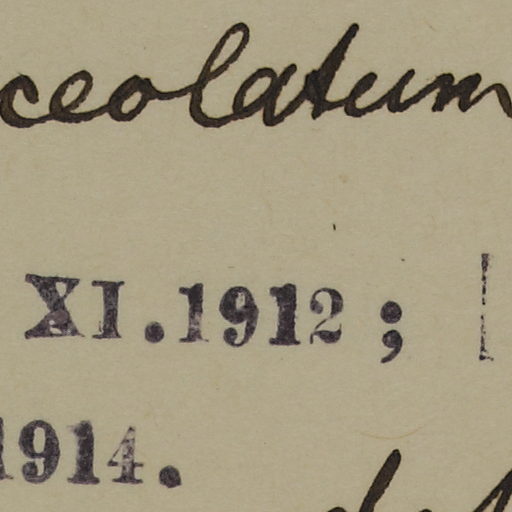 ceolatum
XI.1912; [
1914.